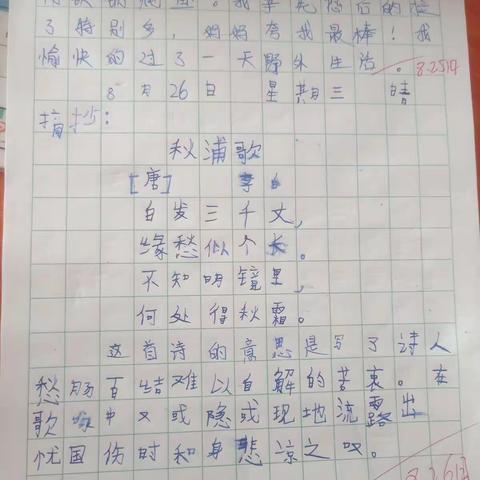 了特别多，妈妈夸我最棒！我
愉快的过了一天野外生活。 8.25日
8月26日 星期三 晴
摘抄：
秋浦歌
[唐] 李白
白发三千丈，
缘愁似个长。
不知明镜里，
何处得秋霜。
这首诗的意思是写了诗人
愁肠百结难以自解的苦衷。在
歌吟中又或隐或现地流露出
忧国伤时和身悲凉之叹。
8.26日